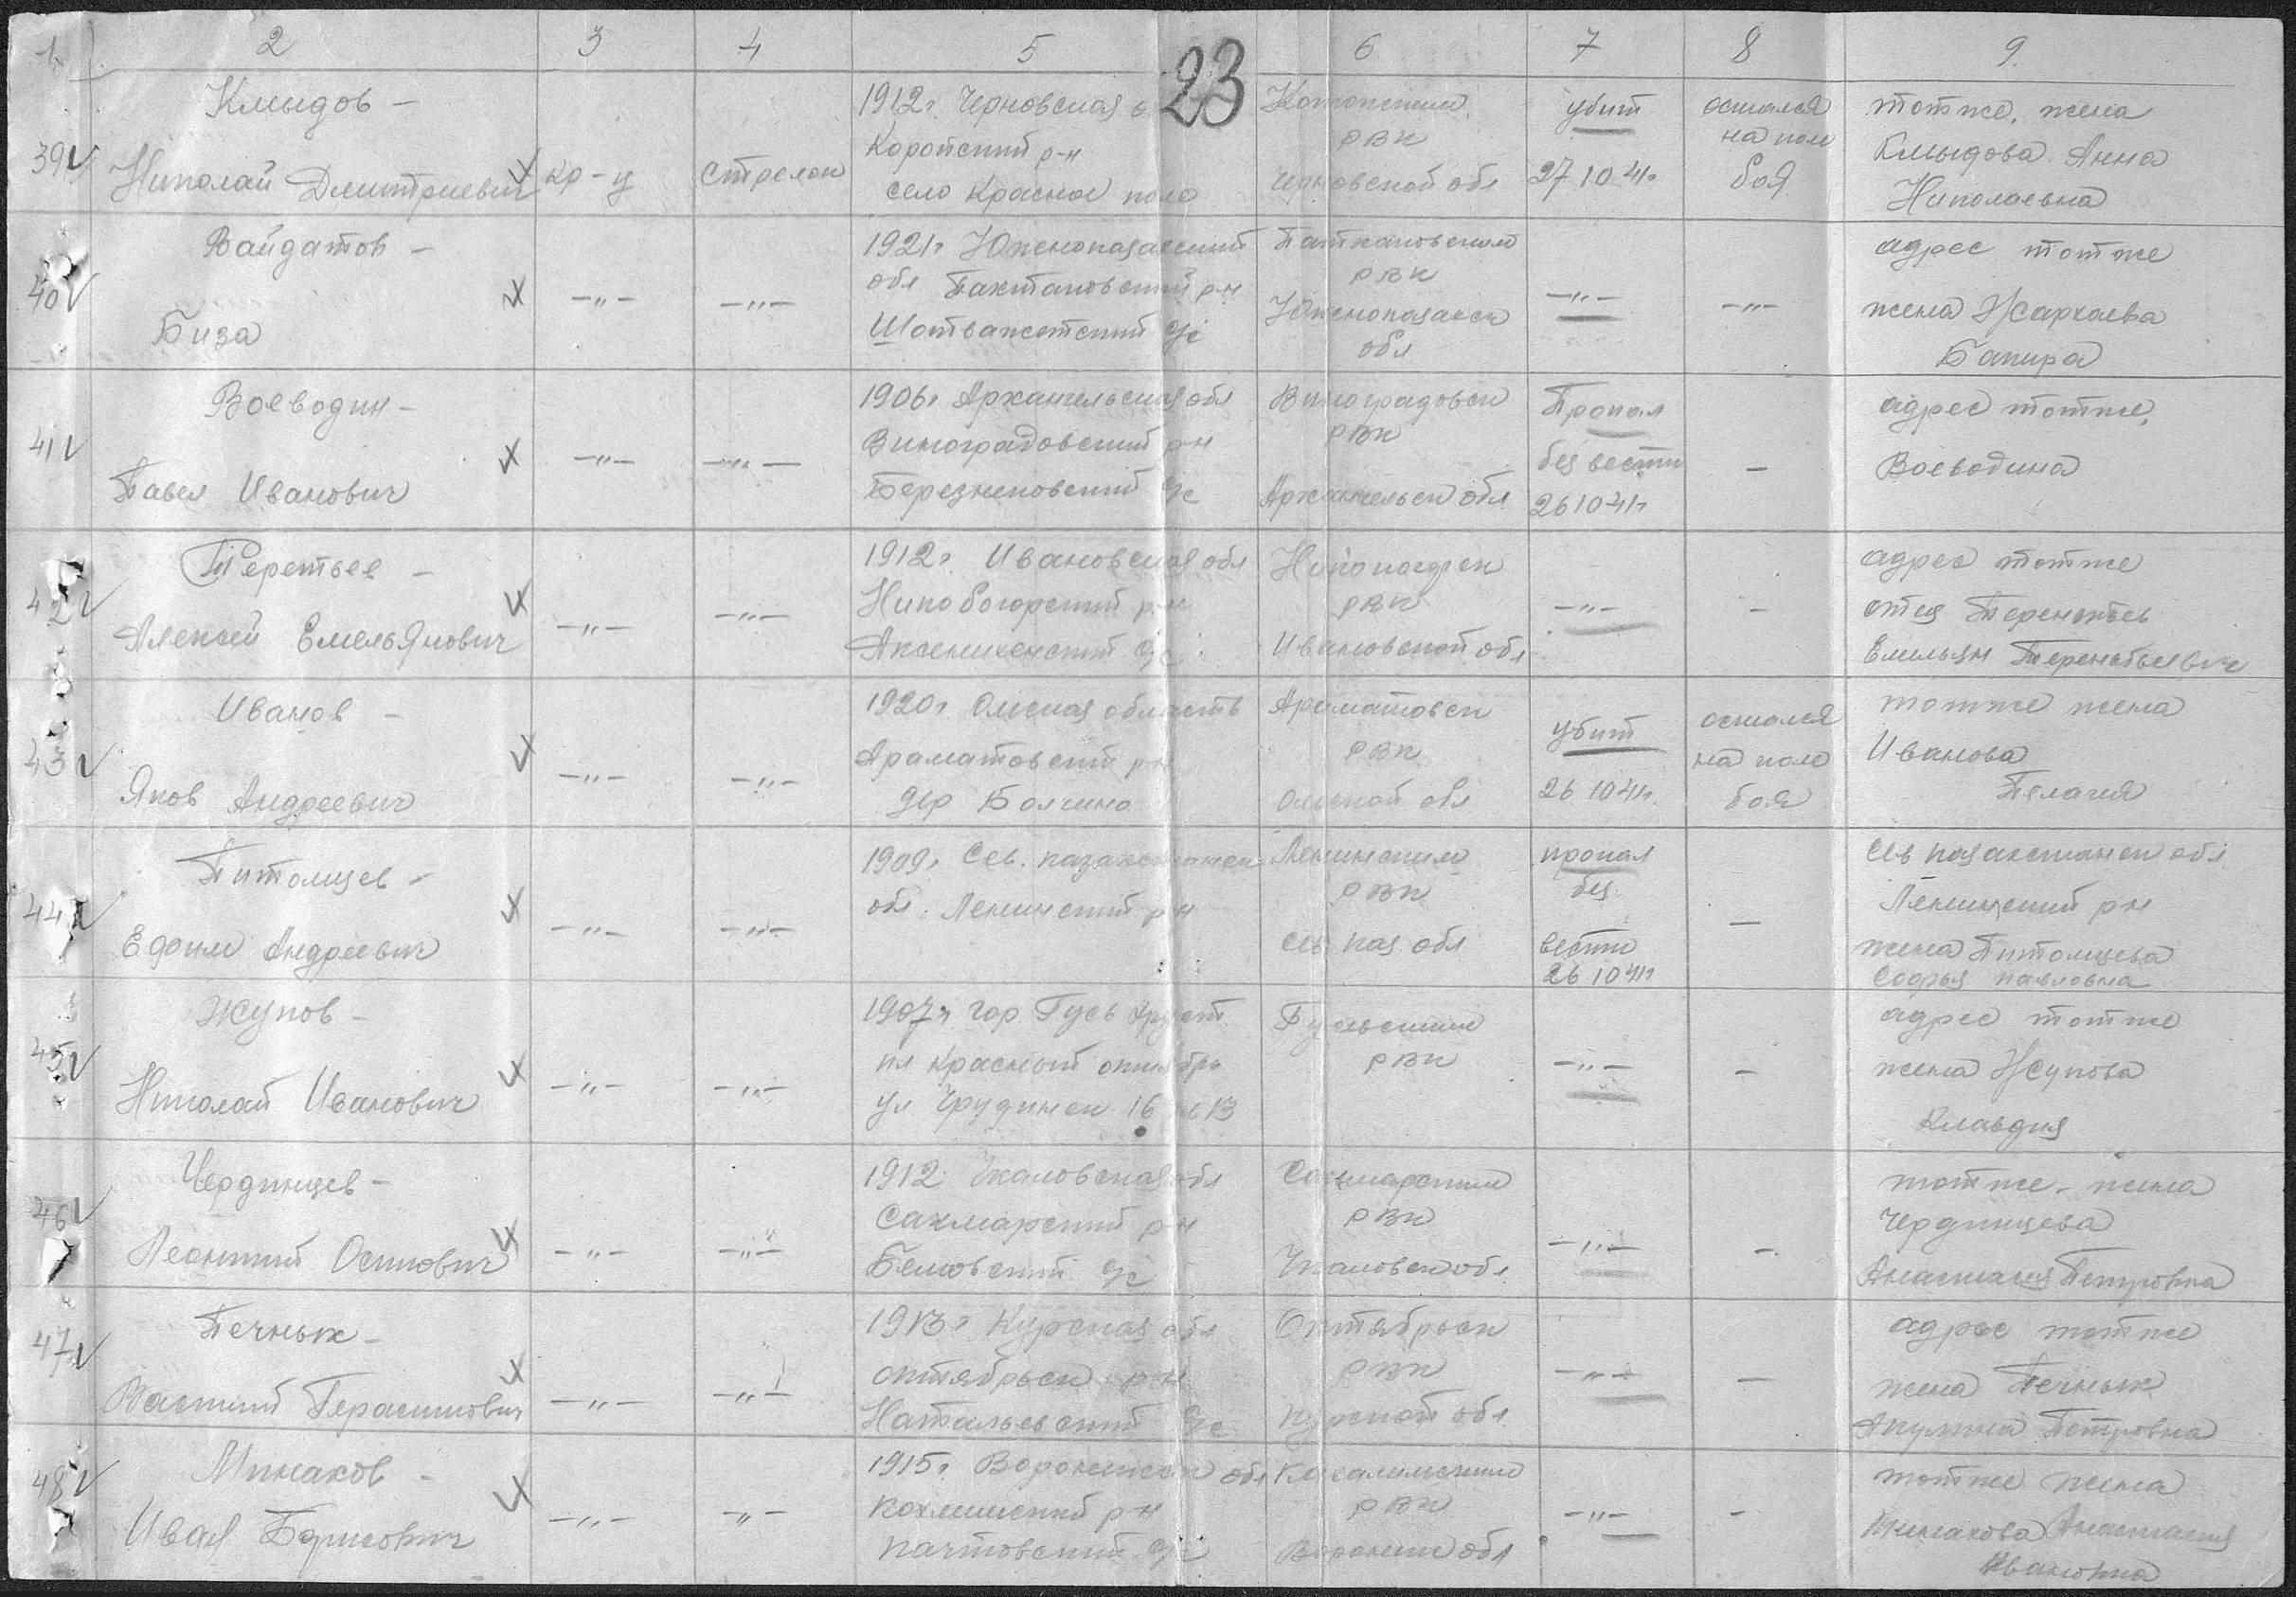 1 2 3 4 5 6 7 8 9
23
39
Кмыдов –
Николай Дмитриевич
кр-ц
стрелок
1912г. Черновская о
Коропский р-н
село Красное поле
РВК
Черновской обл
убит
27 10 41г
остался
на поле
боя
тотже, жена
Кмыдова Анна
Николаевна
40
Вайдатов –
Биза
–"–
–"–
1921г Южноказахский
обл Пахтановский р-н
Шотважетский с/с
РВК
Южноказахск
обл
–"–
–"–
адрес тотже
жена Жархаева
Бакира
41
Воеводин –
Павел Иванович
–"–
–"–
1906г Архангельская обл
Виноградовский р-н
Березниковский с/с
Виноградовск
РВК
Архангельск обл
Пропал
без вести
26 10 41г
–
адрес тотже,
Воеводина
42
Теретьев –
Алексей Емельянович
–"–
–"–
1912г. Ивановская обл
р-н
с/с
РВК
Ивановской обл
–"–
–
адрес тотже
отец Терентьев
Емельян Терентьевич
43
Иванов –
Яков Андреевич
–"–
–"–
1920г Омская область
Араматовский р-н
дер Болчино
Араматовск
РВК
Омской обл
убит
26 10 41г.
остался
на поле
боя
тотже жена
Иванова
Пелагея
44
Питомцев –
Ефим Андреевич
–"–
–"–
1909г Сев. казахстанск
обл. Ленинский р-н
Ленинским
РВК
Сев каз. обл
пропал
без
вести
26 10 41г
–
Сев казахстанск обл
Ленинский р-н
жена Питомцева
Софья павловна
45
Жупов –
Николай Иванович
–"–
–"–
1907г гор Гусь Хруст
пл Красный октябрь
ул 16 кв 13
Гусевским
РВК
–"–
–
адрес тотже
жена Жупова
Клавдия
46
Чердинцев –
Леонтий Осипович
–"–
–"–
1912 Чкаловская обл
Сакмарский р-н
Беловский с/с
Сакмарским
РВК
Чкаловск обл
–"–
–
тотже – жена
Чердинцева
Анастасия Петровна
47
Печнык –
Василий Герасимович
–"–
–"–
1913г. Курская обл
октябрьск р-н
Натальевский с/с
Октябрьск
РВК
Курской обл
–"–
–
адрес тотже
жена Печнык
Акулина Петровна
48
Минаков –
Иван Борисович
–"–
–"–
1915г. Воронежск обл
р-н
с/с
РВК
Воронеж обл
–"–
–
тотже жена
Минакова Анастасия
Ивановна